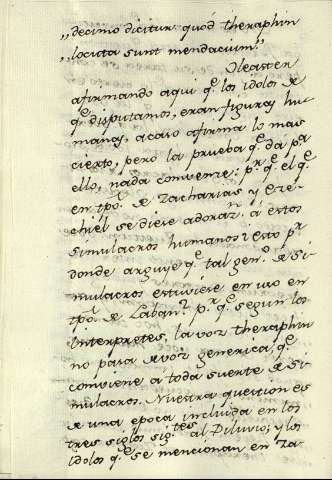 „decimo dicitur quód theraphin
„locuta sunt mendacium."
Oleaster
afirmando aqui qe los idolos de
qe disputamos, eran figuras hu-
manas, acaso afirma lo mas
cierto, pero la prueba qe da pa
ello, nada convenze: pr qe el qe
en tpo. de Zacharias y Eze-
chiel se diese adorazn. á estos
simulacros humanos: esto pr
donde arguye qe tal geno. de si-
mulacros estuviese en uso en
tpo. de Laban? pr qe según los
Interpretes, la voz theraphin
no pasa de voz generica, qe
conviene a toda suerte de si-
mulacros. Nuestra question es
de una epoca incluida en los
tres siglos sigtes al Diluvio; y los
idolos qe se mencionan en Za-